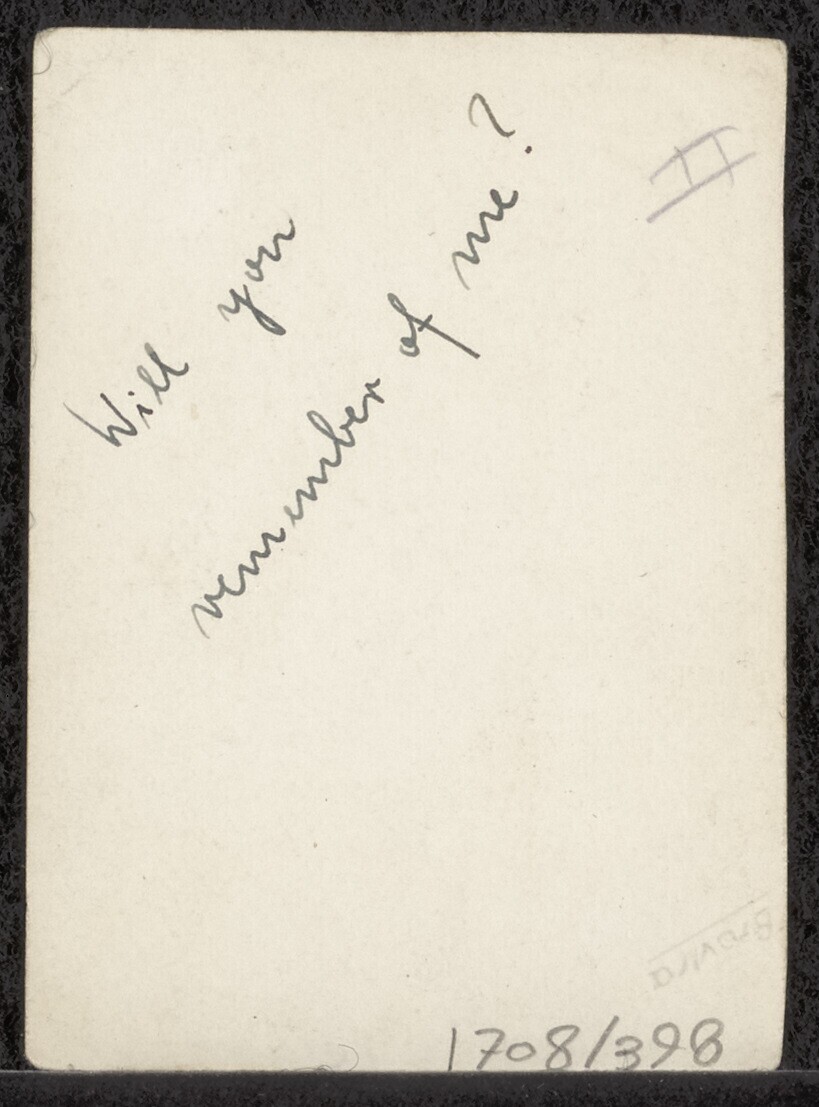 Will you
remember of me?
II
1708/398